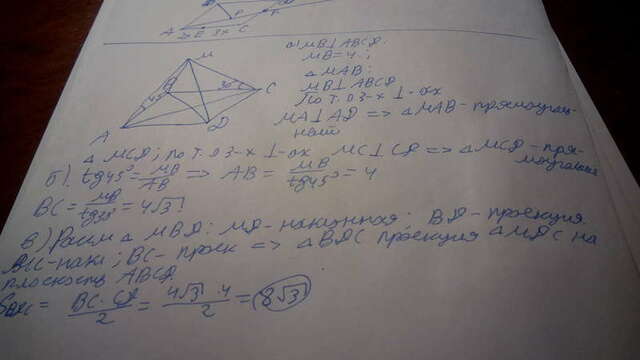 A
C
M
45°
30°
C
A
D
а) MB⊥ABCD.
MB=4;
△MAB:
MB⊥ABCD
По т. о 3-х ⊥-ах
MA⊥AD => △MAB - прямоуголь-
ный
△ MCD; по т. о 3-х ⊥-ах MC⊥CD => △MCD - пря-
моугольный
б). tg45°= MB/AB => AB = MB/tg45° = 4
BC = MB/tg30° = 4√3
в) Рассм △ MBD: MD - наклонная; BD - проекция
MC - накл; BC - проек => △BDC проекция △MDC на
плоскость ABCD.
S = BC·CD/2 = 4√3·4/2 = 8√3